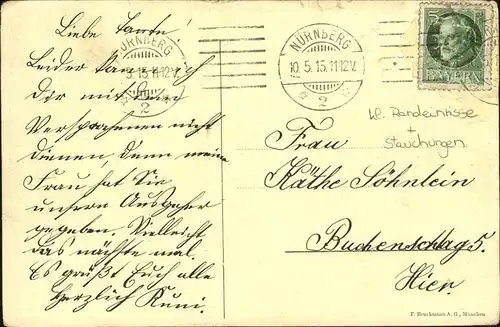 Liebe Tante!
Leider kann ich
Dir mit dem
Versprochenen nicht
dienen, denn meine
Frau hat Sie
unserm Ausgeher
gegeben. Vielleicht
das nächste mal.
Es grüßt Euch alle
herzlich Kuni.
NÜRNBERG
5.15.11-12V.
2
NÜRNBERG
10.5.15.11-12V.
2
BAYERN
kl. Randeinrisse
+
Stauchungen
Frau
Käthe Söhnlein
Buchenschlag 5.
Hier.
F. Bruckmann A. G., München